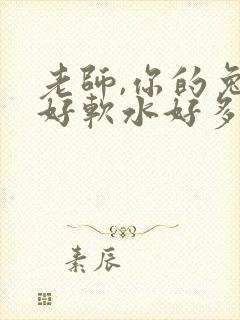 老師,你的兔
好軟水好多
素辰